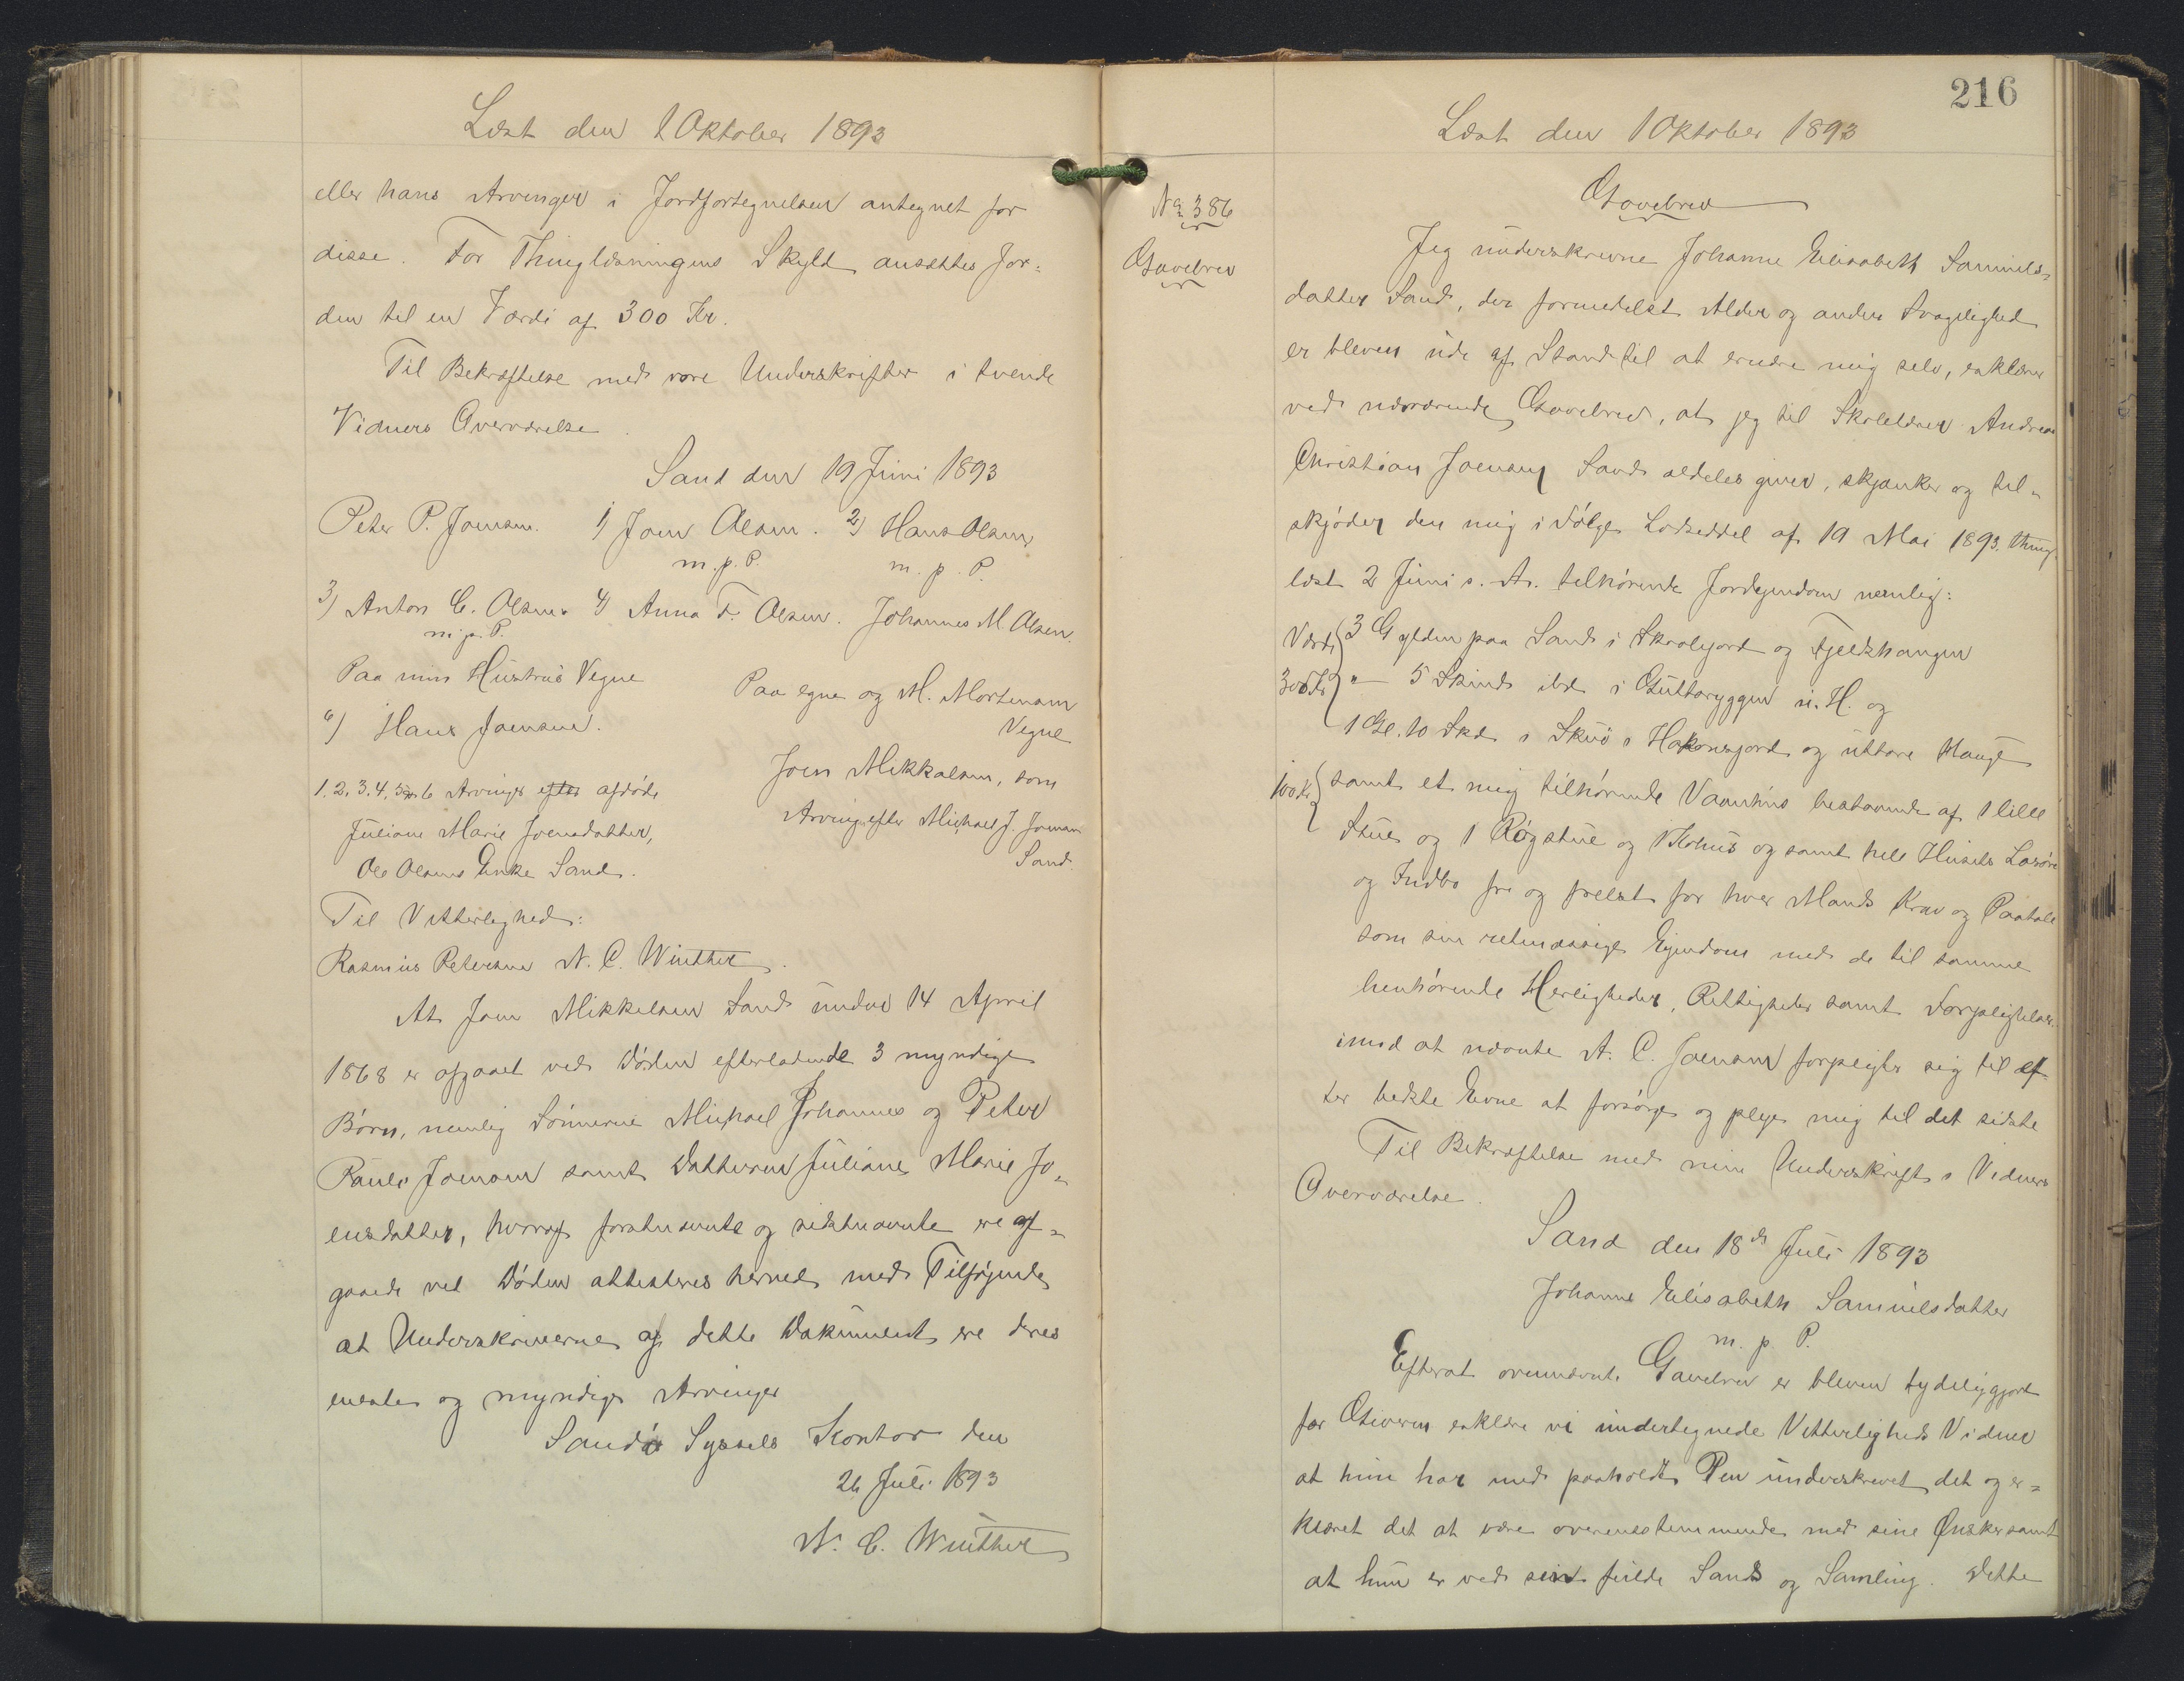 Læst den 1 Oktober 1893
eller hans Arvinger i Jordfortegnelsen antegnet for
disse. For Thinglæsningens Skyld ansættes Jor=
den til en Værdi af 300 Kr.
Til Bekræftelse med vore Underskrifter i tvende
Vidners Overværelse.
Sand den 19 Juni 1893
Peter P. Joensen. 1) Joen Olsen. 2) Hans Olsen
m. p. P. m. p. P.
3) Anton C. Olsen. 4) Anna F. Olsen. Johannes M. Olsen.
m. p. P.
Paa min Hustrus Vegne
Paa egne og M. Mortensens
Vegne
6) Hans Joensen.
Joen Mikkelsen, som
1. 2. 3. 4. 5 og 6 Arvinger efter afdøde
Arving efter Michael J. Joensen
Juliane Marie Joensdatter,
Sand.
Ole Olsens Enke Sand.
Til Vitterlighed:
Rasmus Petersen N. C. Winther.
At Joen Mikkelsen Sand under 14 April
1868 er afgaaet ved Døden efterladende 3 myndige
Børn, nemlig Sønnerne Michael Johannes og Peter
Paule Joensen samt Datteren Juliane Marie Jo=
ensdatter, hvoraf førstnævnte og sidstnævnte ere af=
gaaede ved Døden attesteres herved med Tilføjende
at Underskriverne af dette Dokument ere deres
eneste og myndige Arvinger
Sandø Syssels Kontor den
26 Juli 1893
N. C. Winther
216
Læst den 1 Oktober 1893
No 386
Gavebrev
Gavebrev
Jeg underskrevne Johanne Elisabeth Samuels=
datter Sand, der formedelst Alder og anden Svagelighed
er bleven ude af Stand til at ernære mig selv, erklærer
ved nærværende Gavebrev, at jeg til Skolelærer Andreas
Christian Joensen Sand aldeles giver, skjænker og til=
skjøder den mig i Følge Lodseddel af 19 Mai 1893, thing=
læst 2 Juni s. A. tilhørende Jordejendom nemlig:
Værdi 3 Gylden paa Sand i Skralgjord og Fjeldshangen
300 Kr " — 5 Skind ibd i Guttaryggen u. H. og
1 Gl. 10 Skd i Skuø i Hakonsgjord og uttare Haugi
100 Kr samt et mig tilhørende Vaanhus bestaaende af 1 lille
Stue og 1 Røgstue og 1 Kohus og samt hele Husets Løsøre
og Indbo fri og frelst for hver Mands Krav og Paatale
som sin retmæssige Ejendom med de til samme
henhørende Herligheder, Rettigheder samt Forpligtelser
imod at nævnte A. C. Joensen forpligter sig til ef
ter bedste Evne at forsørge og pleje mig til det sidste
Til Bekræftelse med min Underskrift i Vidners
Overværelse.
Sand den 18de Juli 1893
Johanne Elisabeth Samuelsdatter
m. p P.
Efterat ovennævnte Gavebrev er bleven tydeliggjort
for Giveren erklære vi undertegnede Vitterligheds Vidner
at hun har med paaholdt Pen underskrevet det og er=
klæret det at være overensstemmende med sine Ønsker samt
at hun er ved sin fulde Sands og Samling. Dette